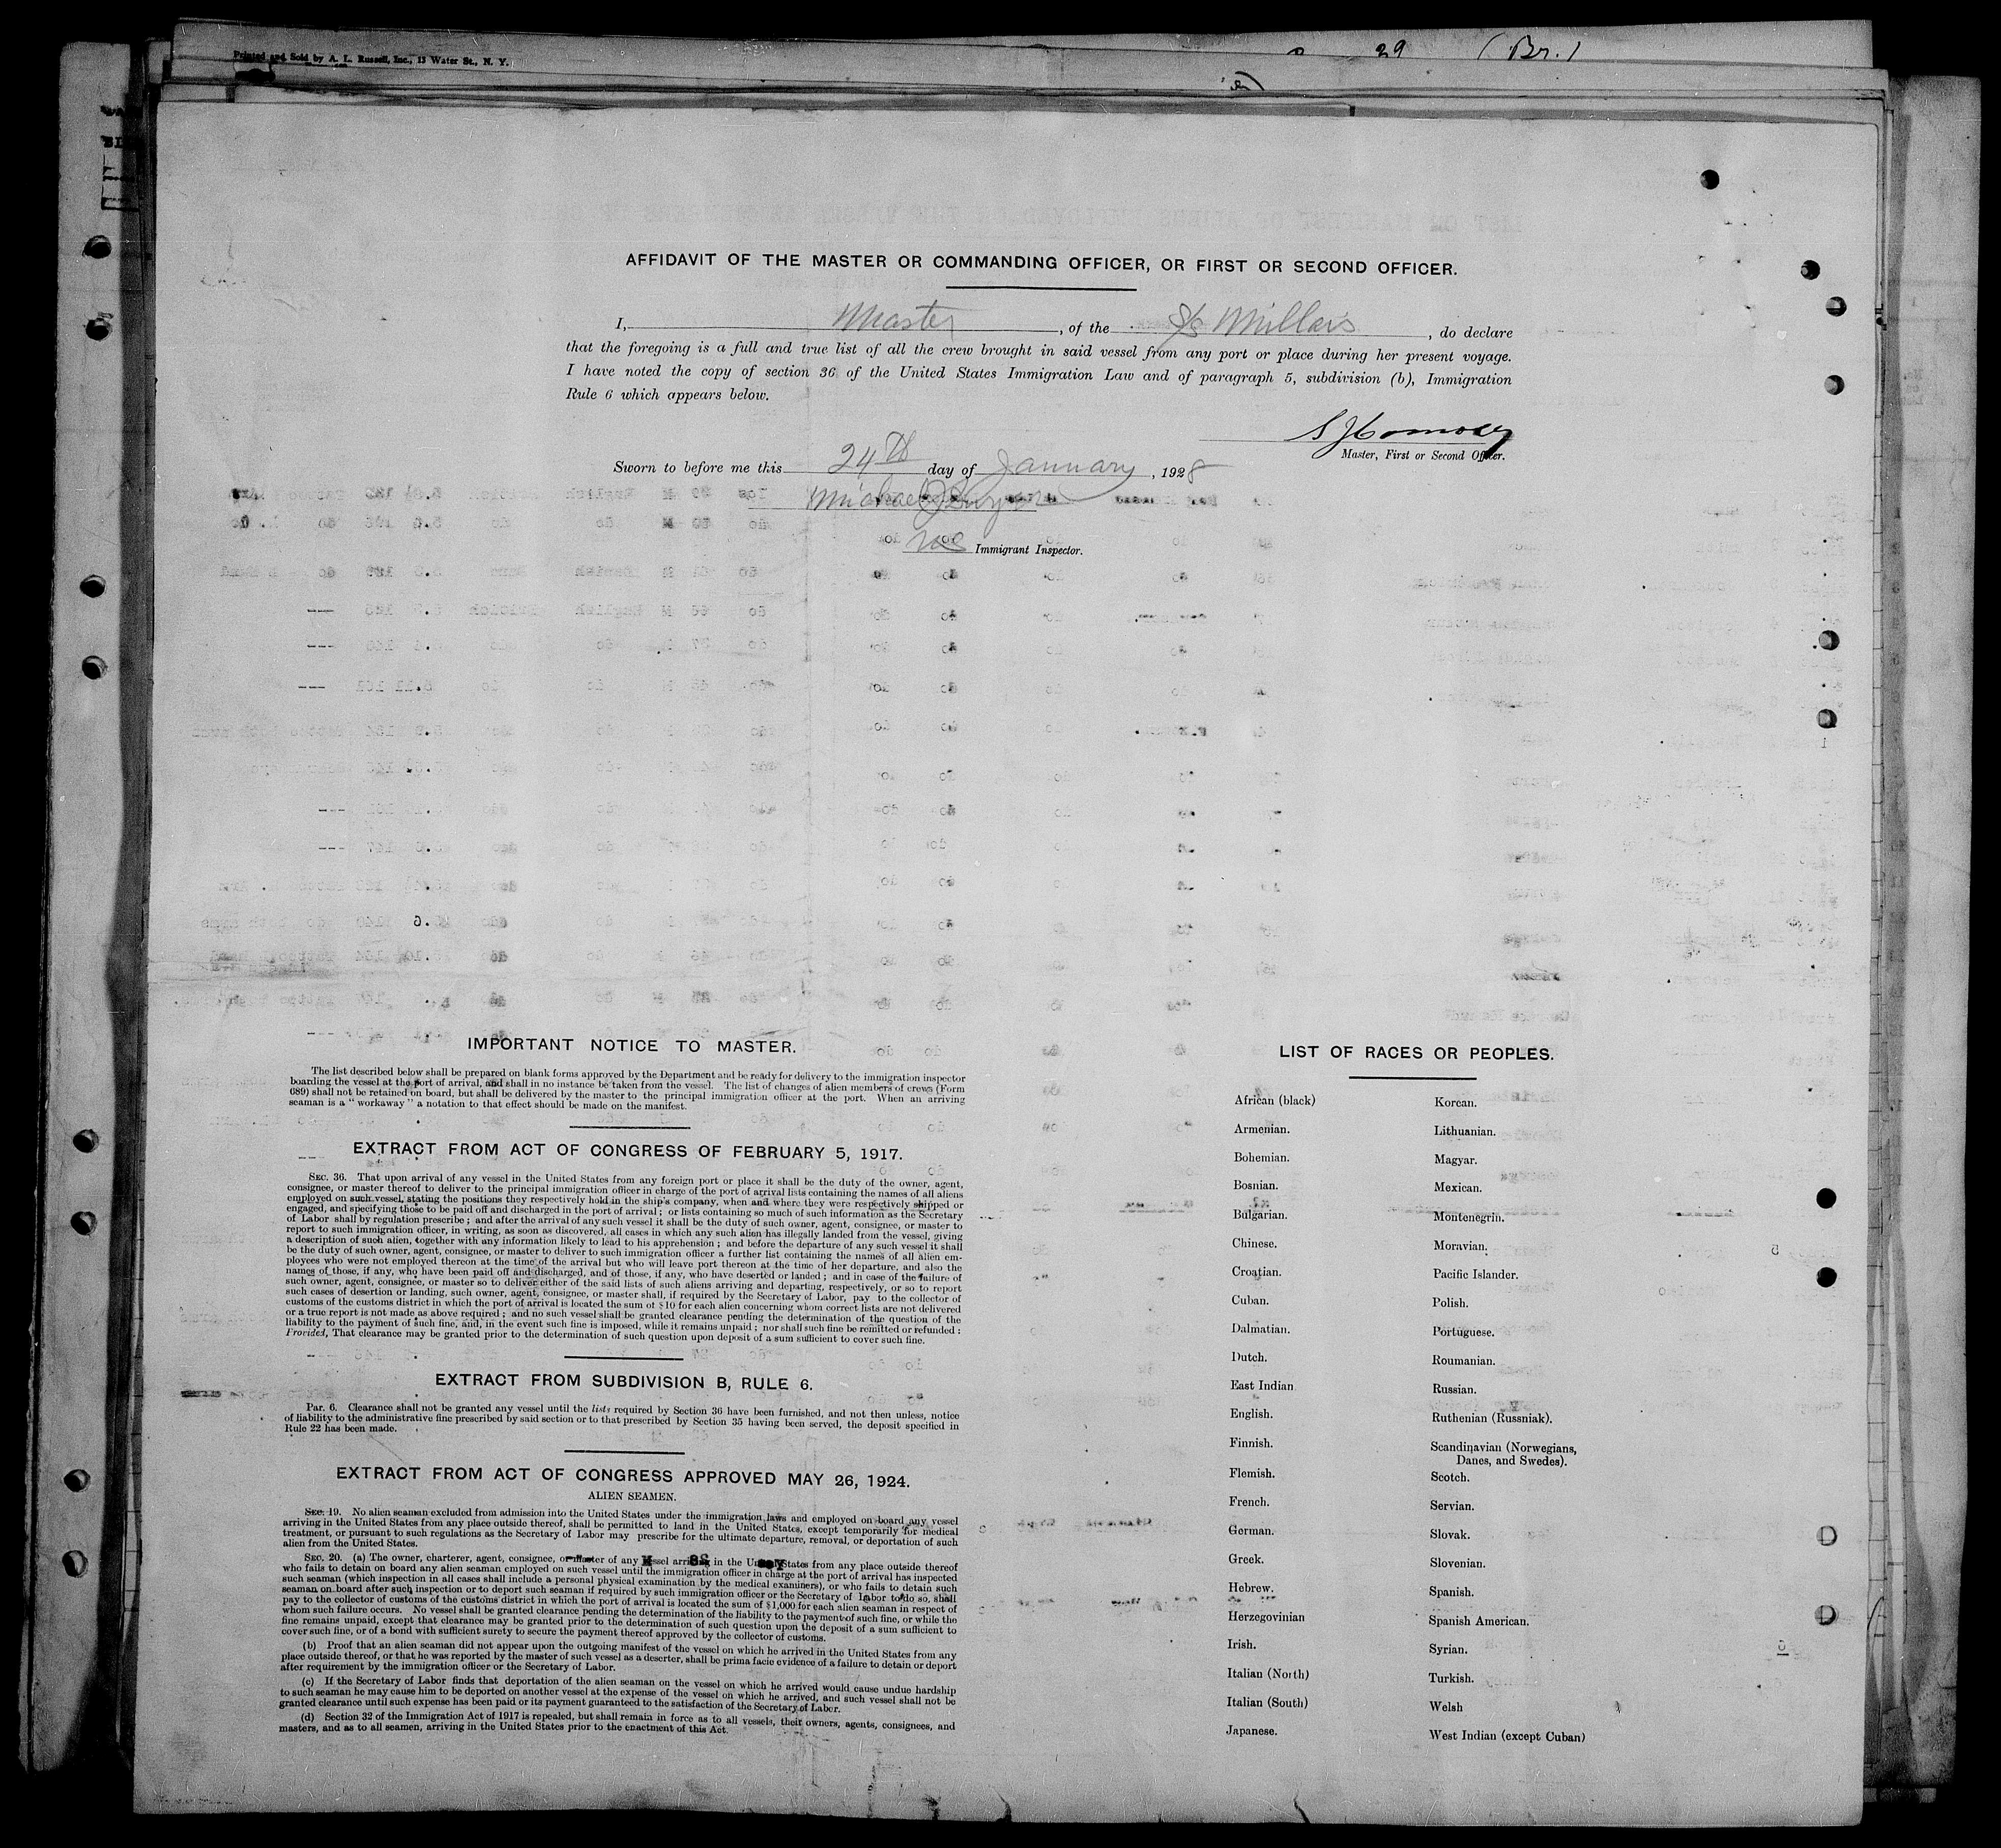 Printed and Sold by A. L. Russell, Inc., 13 Water St., N. Y.
29 (Br.)
AFFIDAVIT OF THE MASTER OR COMMANDING OFFICER, OR FIRST OR SECOND OFFICER.
I, Master, of the S/s Millais, do declare
that the foregoing is a full and true list of all the crew brought in said vessel from any port or place during her present voyage.
I have noted the copy of section 36 of the United States Immigration Law and of paragraph 5, subdivision (b), Immigration
Rule 6 which appears below.
Master, First or Second Officer.
Sworn to before me this 24th day of January, 1928
Michael
Immigrant Inspector.
IMPORTANT NOTICE TO MASTER.
The list described below shall be prepared on blank forms approved by the Department and be ready for delivery to the immigration inspector
boarding the vessel at the port of arrival, and shall in no instance be taken from the vessel. The list of changes of alien members of crews (Form
689) shall not be retained on board, but shall be delivered by the master to the principal immigration officer at the port. When an arriving
seaman is a "workaway" a notation to that effect should be made on the manifest.
EXTRACT FROM ACT OF CONGRESS OF FEBRUARY 5, 1917.
SEC. 36. That upon arrival of any vessel in the United States from any foreign port or place it shall be the duty of the owner, agent,
consignee, or master thereof to deliver to the principal immigration officer in charge of the port of arrival lists containing the names of all aliens
employed on such vessel, stating the positions they respectively hold in the ship's company, when and where they were respectively shipped or
engaged, and specifying those to be paid off and discharged in the port of arrival; or lists containing so much of such information as the Secretary
of Labor shall by regulation prescribe; and after the arrival of any such vessel it shall be the duty of such owner, agent, consignee, or master to
report to such immigration officer, in writing, as soon as discovered, all cases in which any such alien has illegally landed from the vessel, giving
a description of such alien, together with any information likely to lead to his apprehension; and before the departure of any such vessel it shall
be the duty of such owner, agent, consignee, or master to deliver to such immigration officer a further list containing the names of all alien em-
ployees who were not employed thereon at the time of the arrival but who will leave port thereon at the time of her departure, and also the
names of those, if any, who have been paid off and discharged, and of those, if any, who have deserted or landed; and in case of the failure of
such owner, agent, consignee, or master so to deliver either of the said lists of such aliens arriving and departing, respectively, or so to report
such cases of desertion or landing, such owner, agent, consignee, or master shall, if required by the Secretary of Labor, pay to the collector of
customs of the customs district in which the port of arrival is located the sum of $10 for each alien concerning whom correct lists are not delivered
or a true report is not made as above required; and no such vessel shall be granted clearance pending the determination of the question of the
liability to the payment of such fine, and, in the event such fine is imposed, while it remains unpaid; nor shall such fine be remitted or refunded:
Provided, That clearance may be granted prior to the determination of such question upon deposit of a sum sufficient to cover such fine.
EXTRACT FROM SUBDIVISION B, RULE 6.
Par. 6. Clearance shall not be granted any vessel until the lists required by Section 36 have been furnished, and not then unless, notice
of liability to the administrative fine prescribed by said section or to that prescribed by Section 35 having been served, the deposit specified in
Rule 22 has been made.
EXTRACT FROM ACT OF CONGRESS APPROVED MAY 26, 1924.
ALIEN SEAMEN.
SEC. 19. No alien seaman excluded from admission into the United States under the immigration laws and employed on board any vessel
arriving in the United States from any place outside thereof, shall be permitted to land in the United States, except temporarily for medical
treatment, or pursuant to such regulations as the Secretary of Labor may prescribe for the ultimate departure, removal, or deportation of such
alien from the United States.
SEC. 20. (a) The owner, charterer, agent, consignee, or master of any vessel arriving in the United States from any place outside thereof
who fails to detain on board any alien seaman employed on such vessel until the immigration officer in charge at the port of arrival has inspected
such seaman (which inspection in all cases shall include a personal physical examination by the medical examiners), or who fails to detain such
seaman on board after such inspection or to deport such seaman if required by such immigration officer or the Secretary of Labor to do so, shall
pay to the collector of customs of the customs district in which the port of arrival is located the sum of $1,000 for each alien seaman in respect of
whom such failure occurs. No vessel shall be granted clearance pending the determination of the liability to the payment of such fine, or while the
fine remains unpaid, except that clearance may be granted prior to the determination of such question upon the deposit of a sum sufficient to
cover such fine, or of a bond with sufficient surety to secure the payment thereof approved by the collector of customs.
(b) Proof that an alien seaman did not appear upon the outgoing manifest of the vessel on which he arrived in the United States from any
place outside thereof, or that he was reported by the master of such vessel as a deserter, shall be prima facie evidence of a failure to detain or deport
after requirement by the immigration officer or the Secretary of Labor.
(c) If the Secretary of Labor finds that deportation of the alien seaman on the vessel on which he arrived would cause undue hardship
to such seaman he may cause him to be deported on another vessel at the expense of the vessel on which he arrived, and such vessel shall not be
granted clearance until such expense has been paid or its payment guaranteed to the satisfaction of the Secretary of Labor.
(d) Section 32 of the Immigration Act of 1917 is repealed, but shall remain in force as to all vessels, their owners, agents, consignees, and
masters, and as to all seamen, arriving in the United States prior to the enactment of this Act.
LIST OF RACES OR PEOPLES.
African (black)
Armenian.
Bohemian.
Bosnian.
Bulgarian.
Chinese.
Croatian.
Cuban.
Dalmatian.
Dutch.
East Indian
English.
Finnish.
Flemish.
French.
German.
Greek.
Hebrew.
Herzegovinian
Irish.
Italian (North)
Italian (South)
Japanese.
Korean.
Lithuanian.
Magyar.
Mexican.
Montenegrin.
Moravian.
Pacific Islander.
Polish.
Portuguese.
Roumanian.
Russian.
Ruthenian (Russniak).
Scandinavian (Norwegians,
Danes, and Swedes).
Scotch.
Servian.
Slovak.
Slovenian.
Spanish.
Spanish American.
Syrian.
Turkish.
Welsh
West Indian (except Cuban)